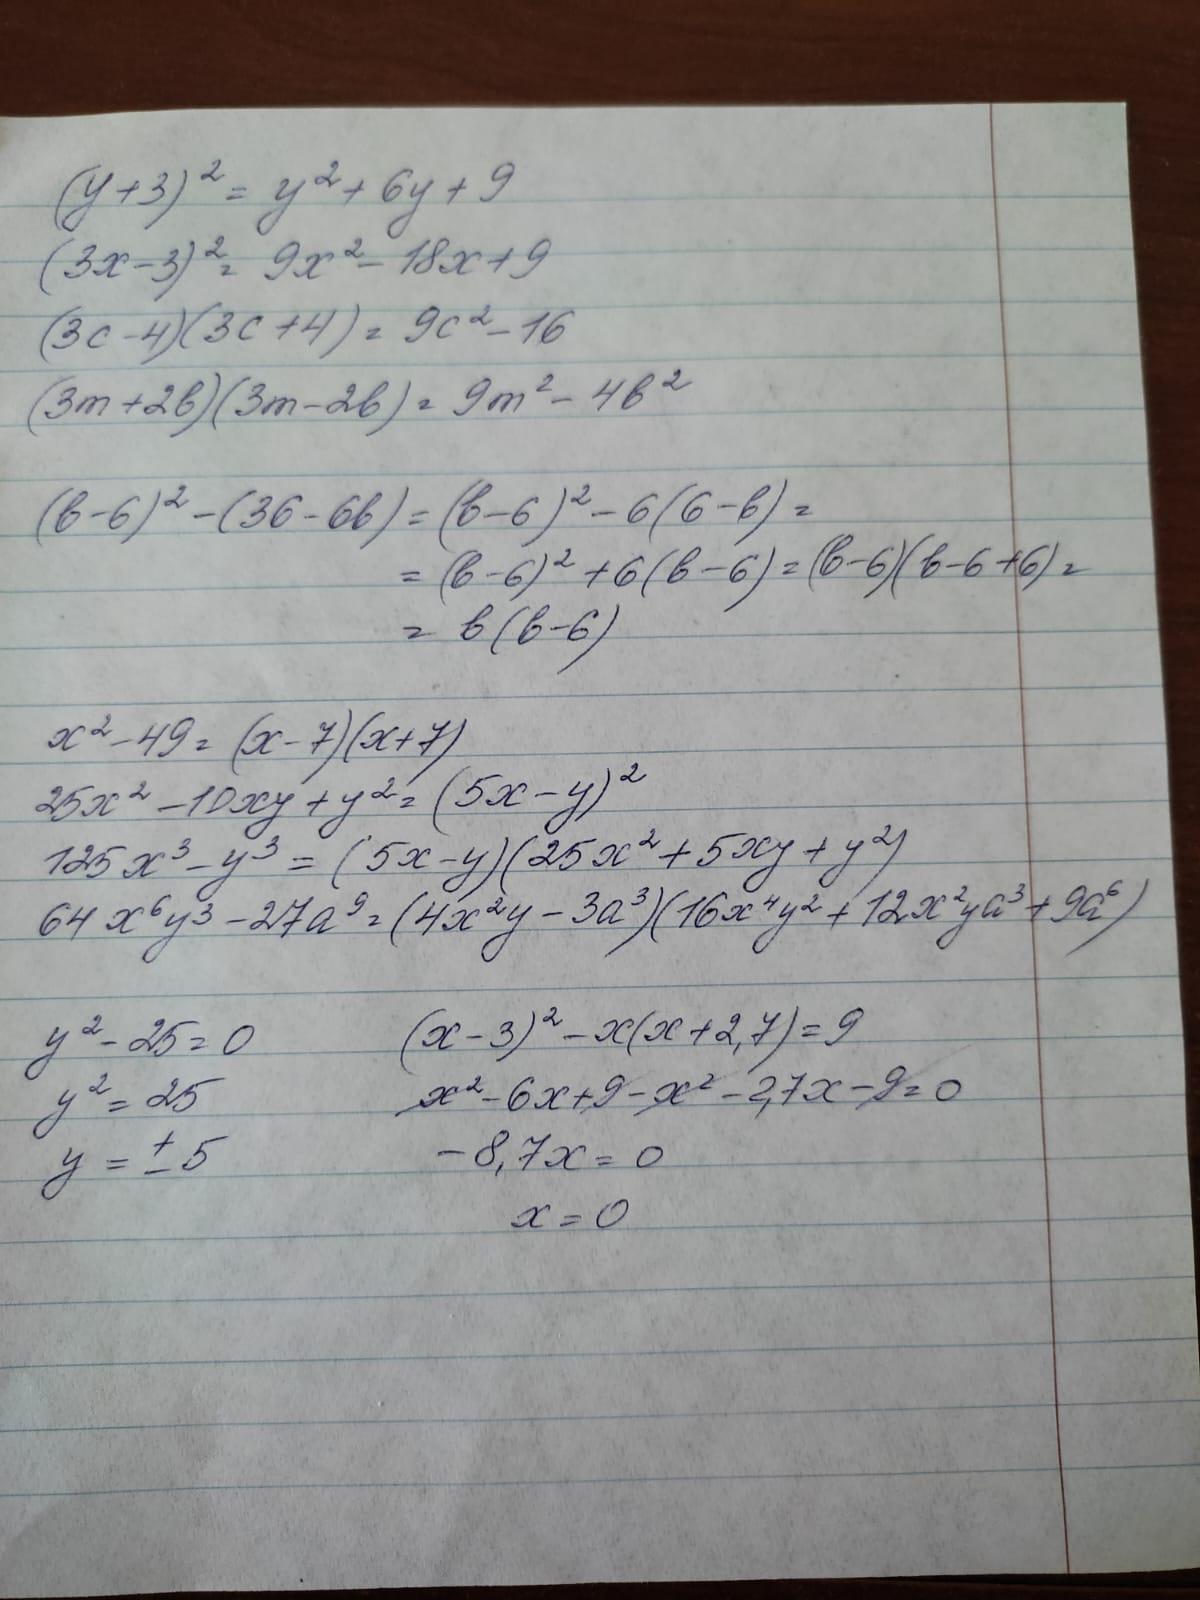 (y+3)² = y² + 6y + 9
(3x-3)² = 9x² - 18x + 9
(3c-4)(3c+4) = 9c² - 16
(3m+2b)(3m-2b) = 9m² - 4b²
(b-6)² - (36-6b) = (b-6)² - 6(6-b) =
= (b-6)² + 6(b-6) = (b-6)(b-6+6) =
= b(b-6)
x² - 49 = (x-7)(x+7)
25x² - 10xy + y² = (5x-y)²
125x³ - y³ = (5x-y)(25x² + 5xy + y²)
64x⁶y³ - 27a⁹ = (4x²y - 3a³)(16x⁴y² + 12x²ya³ + 9a⁶)
y² - 25 = 0
y² = 25
y = ±5
(x-3)² - x(x+2,7) = 9
x² - 6x + 9 - x² - 2,7x - 9 = 0
-8,7x = 0
x = 0